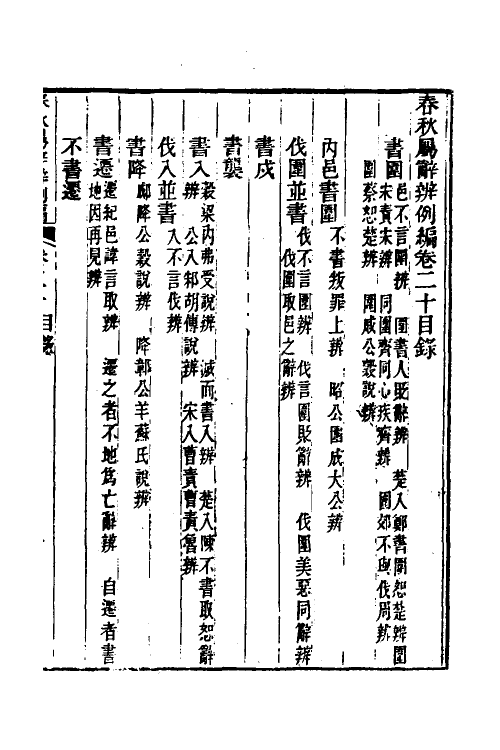 春秋屬辭辨例編卷二十目錄
書圍 邑不言圍辨 圍書人貶辭辨 楚人鄭書圍恕楚辨 圍
宋責宋辨 同圍齊同心疾齊辨 圍郊不與伐周辨
圍蔡恕楚辨 圍戚公穀說辨
內邑書圍 不書叛罪上辨 昭公圍成大公辨
伐圍並書 伐不言圍辨 伐言圍貶辭辨 伐圍美惡同辭辨
伐圍取邑之辭辨
書戍
書襲
書入 穀梁內弗受說辨 滅而書入辨 楚入陳不書取恕辭
辨 公入邾胡傳說辨 宋入曹責曹責魯辨
伐入並書 入不言伐辨
書降 郕降公穀說辨 降鄣公羊蘇氏說辨
書遷 遷紀邑諱言取辨 遷之者不地為亡辭辨 自遷者書
地因再見辨
不書遷